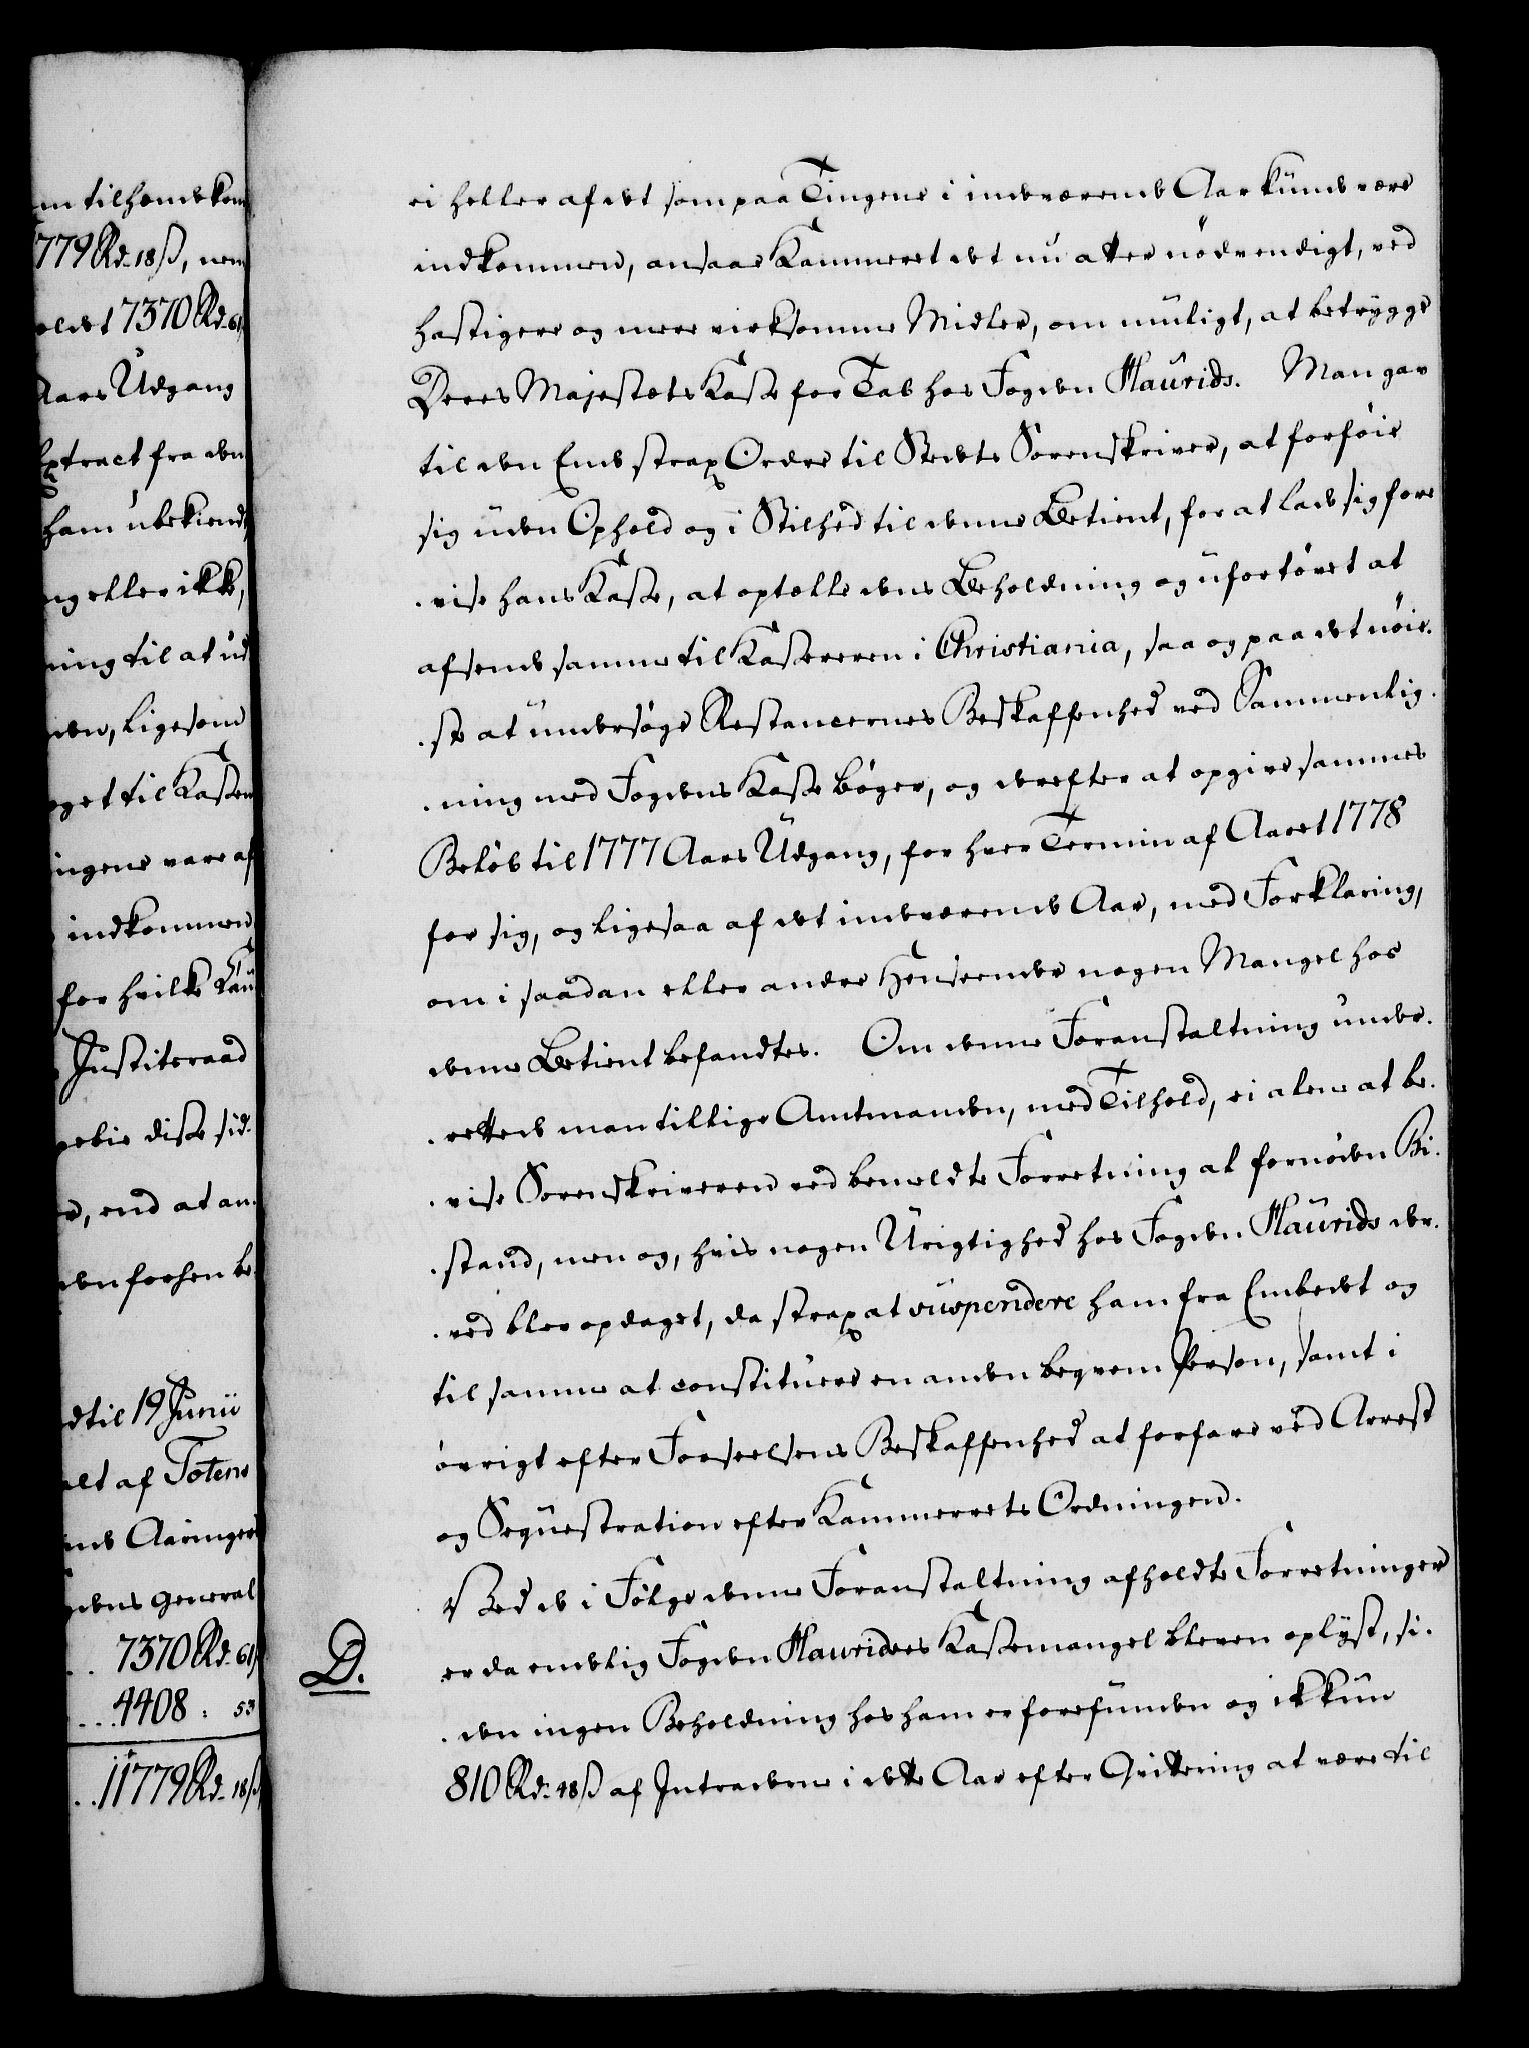 m tilhændekom
779 Rd. 18 ß, nem
oldet 7370 Rd. 61
Aars Udgang
Extract fra den
ham ubekiendt
ng eller ikke,
ning til at ud
den, ligesom
oget til Kassen
ingene vare af
indkommen
for hvilke Kam
Justitsraad
disse sid.
r, end at an.
den forhen be.
dtil 19 Junii
alt af Totens
Aaringer
dens General
. . 7370 Rd. 61
. . . 4408 : 53
. . 11779 Rd. 18 ß
ei heller af det som paa Tingene i indeværende Aar kunde være
indkommen, ansaae Kammeret det nu atter nødvendigt, ved
hastigere og mere virksomme Midler, om muligt, at betrygge
Deres Majestets Kasse for Tab hos Fogden Haurids. Man gav
til den Ende strax Ordre til Stedets Sorenskriver, at forføie
sig uden Ophold og i Stilhed til denne Betient, for at lade sig fore
. vise hans Kasse, at optælle dens Beholdning og ufortøvet at
afsende samme til Kassereren i Christiania, saa og paa det nøie.
. ste at undersøge Restancernes Beskaffenhed ved Sammenlig.
. ning med Fogdens Kasse bøger, og derefter at opgive sammes
Beløb til 1777 Aars Udgang, for hver Termin af Aaret 1778
for sig, og ligesaa af det indeværende Aar, med Forklaring,
om i saadan eller andre Henseender nogen Mangel hos
denne Betient befandtes. Om denne Foranstaltning under.
. rettede man tillige Amtmanden, med Tilhold, ei alene at be.
. vise Sorenskriveren ved bemeldte Forretning al fornøden Bi.
. stand, men og, hvis nogen Urigtighed hos Fogden Haurids der.
. ved blev opdaget, da strax at suspendere ham fra Embedet og
til samme at constituere en anden beqvem Person, samt i
øvrigt efter Forseelsens Beskaffenhed at forfare ved Arrest
og Sequestration efter Kammerrets Ordningen.
Ved de i Følge denne Foranstaltning afholdte Forretninger
D.
er da endelig Fogden Hauridses Kassemangel bleven oplyst, si.
. den ingen Beholdning hos ham er forefunden og ikkun
810 Rd. 48 ß af Intraderne i dette Aar efter Qvittering at være til